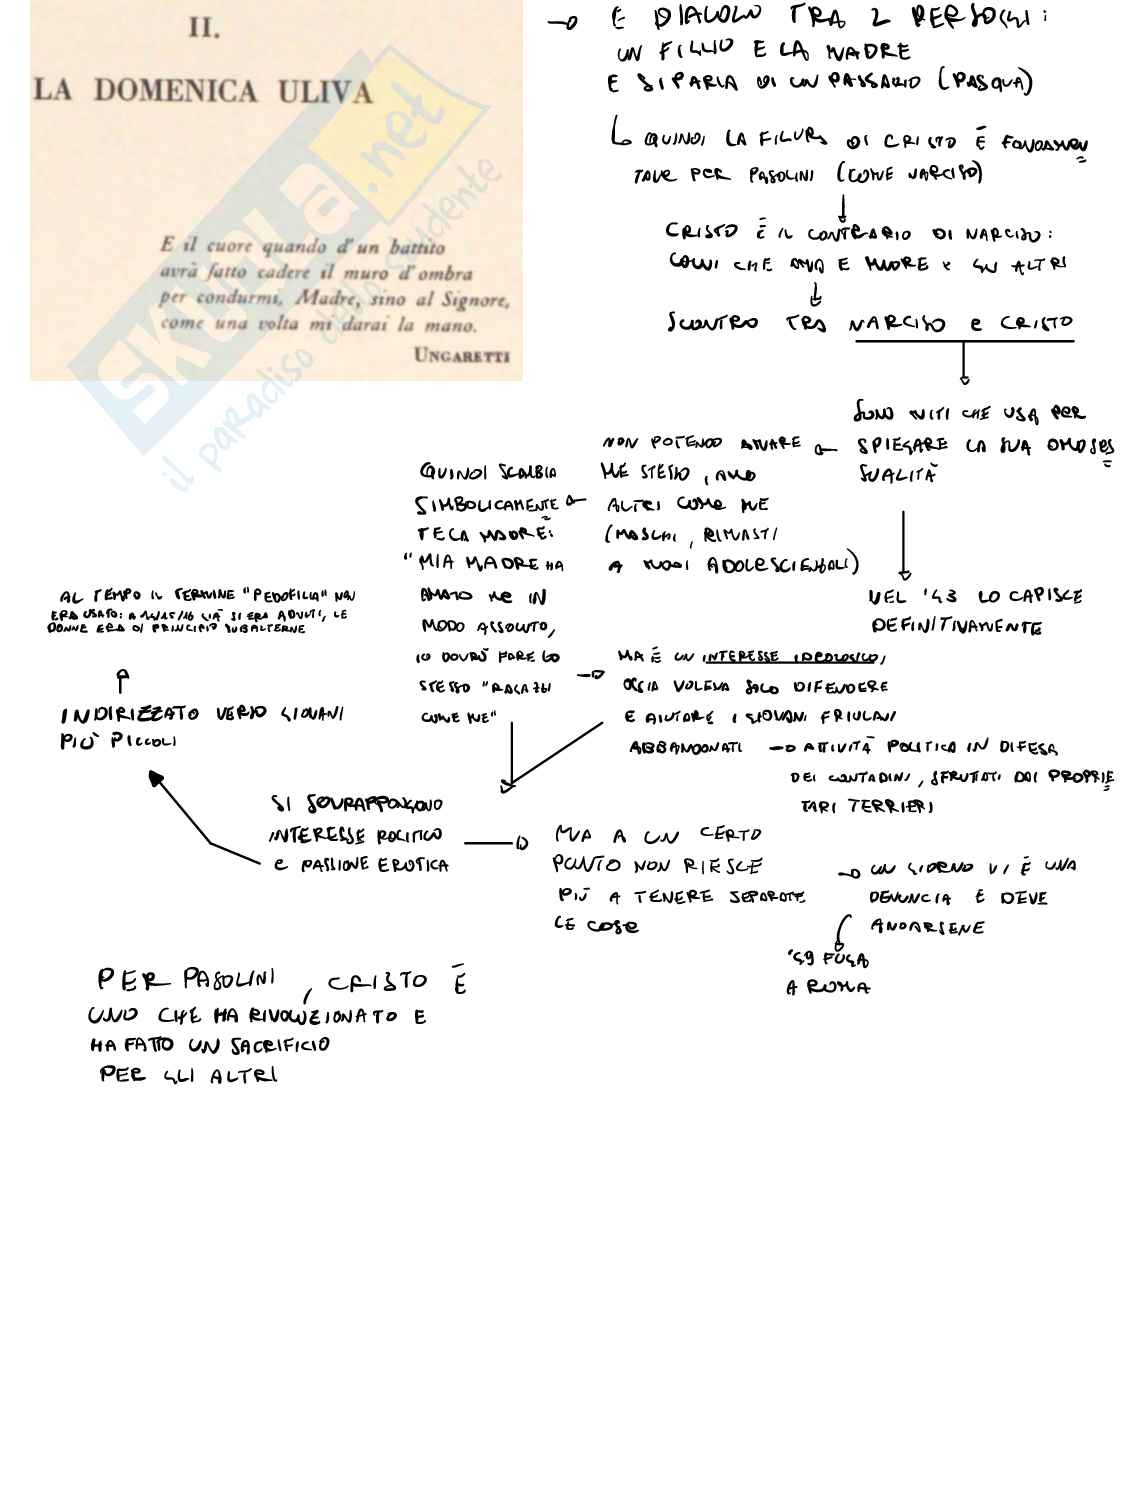 II.
LA DOMENICA ULIVA
E il cuore quando d'un battito
avrà fatto cadere il muro d'ombra
per condurmi, Madre, sino al Signore,
come una volta mi darai la mano.
UNGARETTI
SKUOLA.net
il paradiso dello studente
→ È DIALOGO TRA 2 PERSONAGGI:
UN FIGLIO E LA MADRE
E SI PARLA DI UN PASSAGGIO (PASQUA)
QUINDI LA FIGURA DI CRISTO È FONDAMEN
TALE PER PASOLINI (COME NARCISO)
CRISTO È IL CONTRARIO DI NARCISO:
COLUI CHE AMA E MUORE x GLI ALTRI
SCONTRO TRA NARCISO e CRISTO
SONO MITI CHE USA PER
SPIEGARE LA SUA OMOSES
SUALITÀ
NEL '43 LO CAPISCE
DEFINITIVAMENTE
NON POTENDO AMARE
ME STESSO, AMO
ALTRI COME ME
(MASCHI, RIMASTI
A MODI ADOLESCENZIALI)
QUINDI SCAMBIA
SIMBOLICAMENTE
MADRE:
"MIA MADRE HA
AMATO ME IN
MODO ASSOLUTO,
IO DOVRÒ FARE LO
STESSO "RAGAZZI
COME ME"
→ MA È UN INTERESSE IDEOLOGICO,
OSSIA VOLEVA SOLO DIFENDERE
E AIUTARE I GIOVANI FRIULANI
ABBANDONATI → ATTIVITÀ POLITICA IN DIFESA
DEI CONTADINI, SFRUTTATI DAI PROPRIE
TARI TERRIERI
SI SOVRAPPONGONO
INTERESSE POLITICO
e PASSIONE EROTICA
→ MA A UN CERTO
PUNTO NON RIESCE
PIÙ A TENERE SEPARATE
LE COSE
→ UN GIORNO VI È UNA
DENUNCIA E DEVE
ANDARSENE
'49 FUGA
A ROMA
INDIRIZZATO VERSO GIOVANI
PIÙ PICCOLI
AL TEMPO IL TERMINE "PEDOFILIA" NON
ERA USATO: A 14/15/16 GIÀ SI ERA ADULTI, LE
DONNE ERA DI PRINCIPIO SUBALTERNE
PER PASOLINI, CRISTO È
UNO CHE HA RIVOLUZIONATO E
HA FATTO UN SACRIFICIO
PER GLI ALTRI